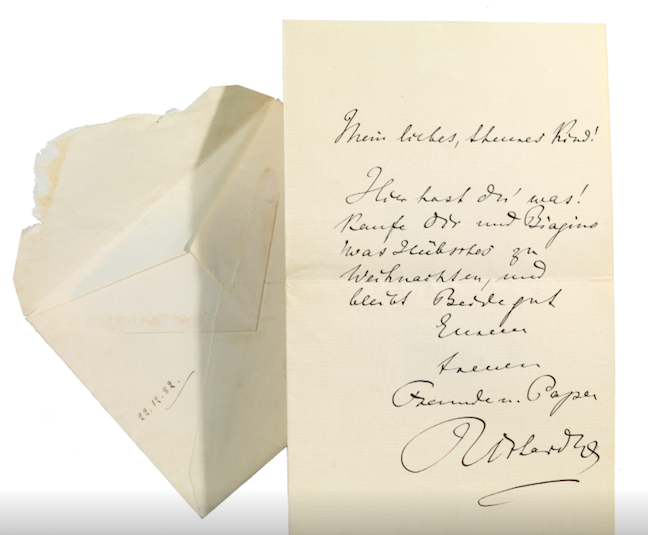 Mein liebes, theures Kind!
Hier hast du was!
Kaufe dir und Biagino
was Hübsches zu
Weihnachten, und
bleibt Beide gut
Eurem
treuen
Freunde u. Papa
RichardW
22.12.82.